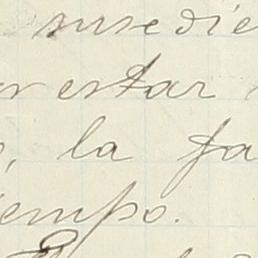 susedie
r estar
, la fa
iempo.